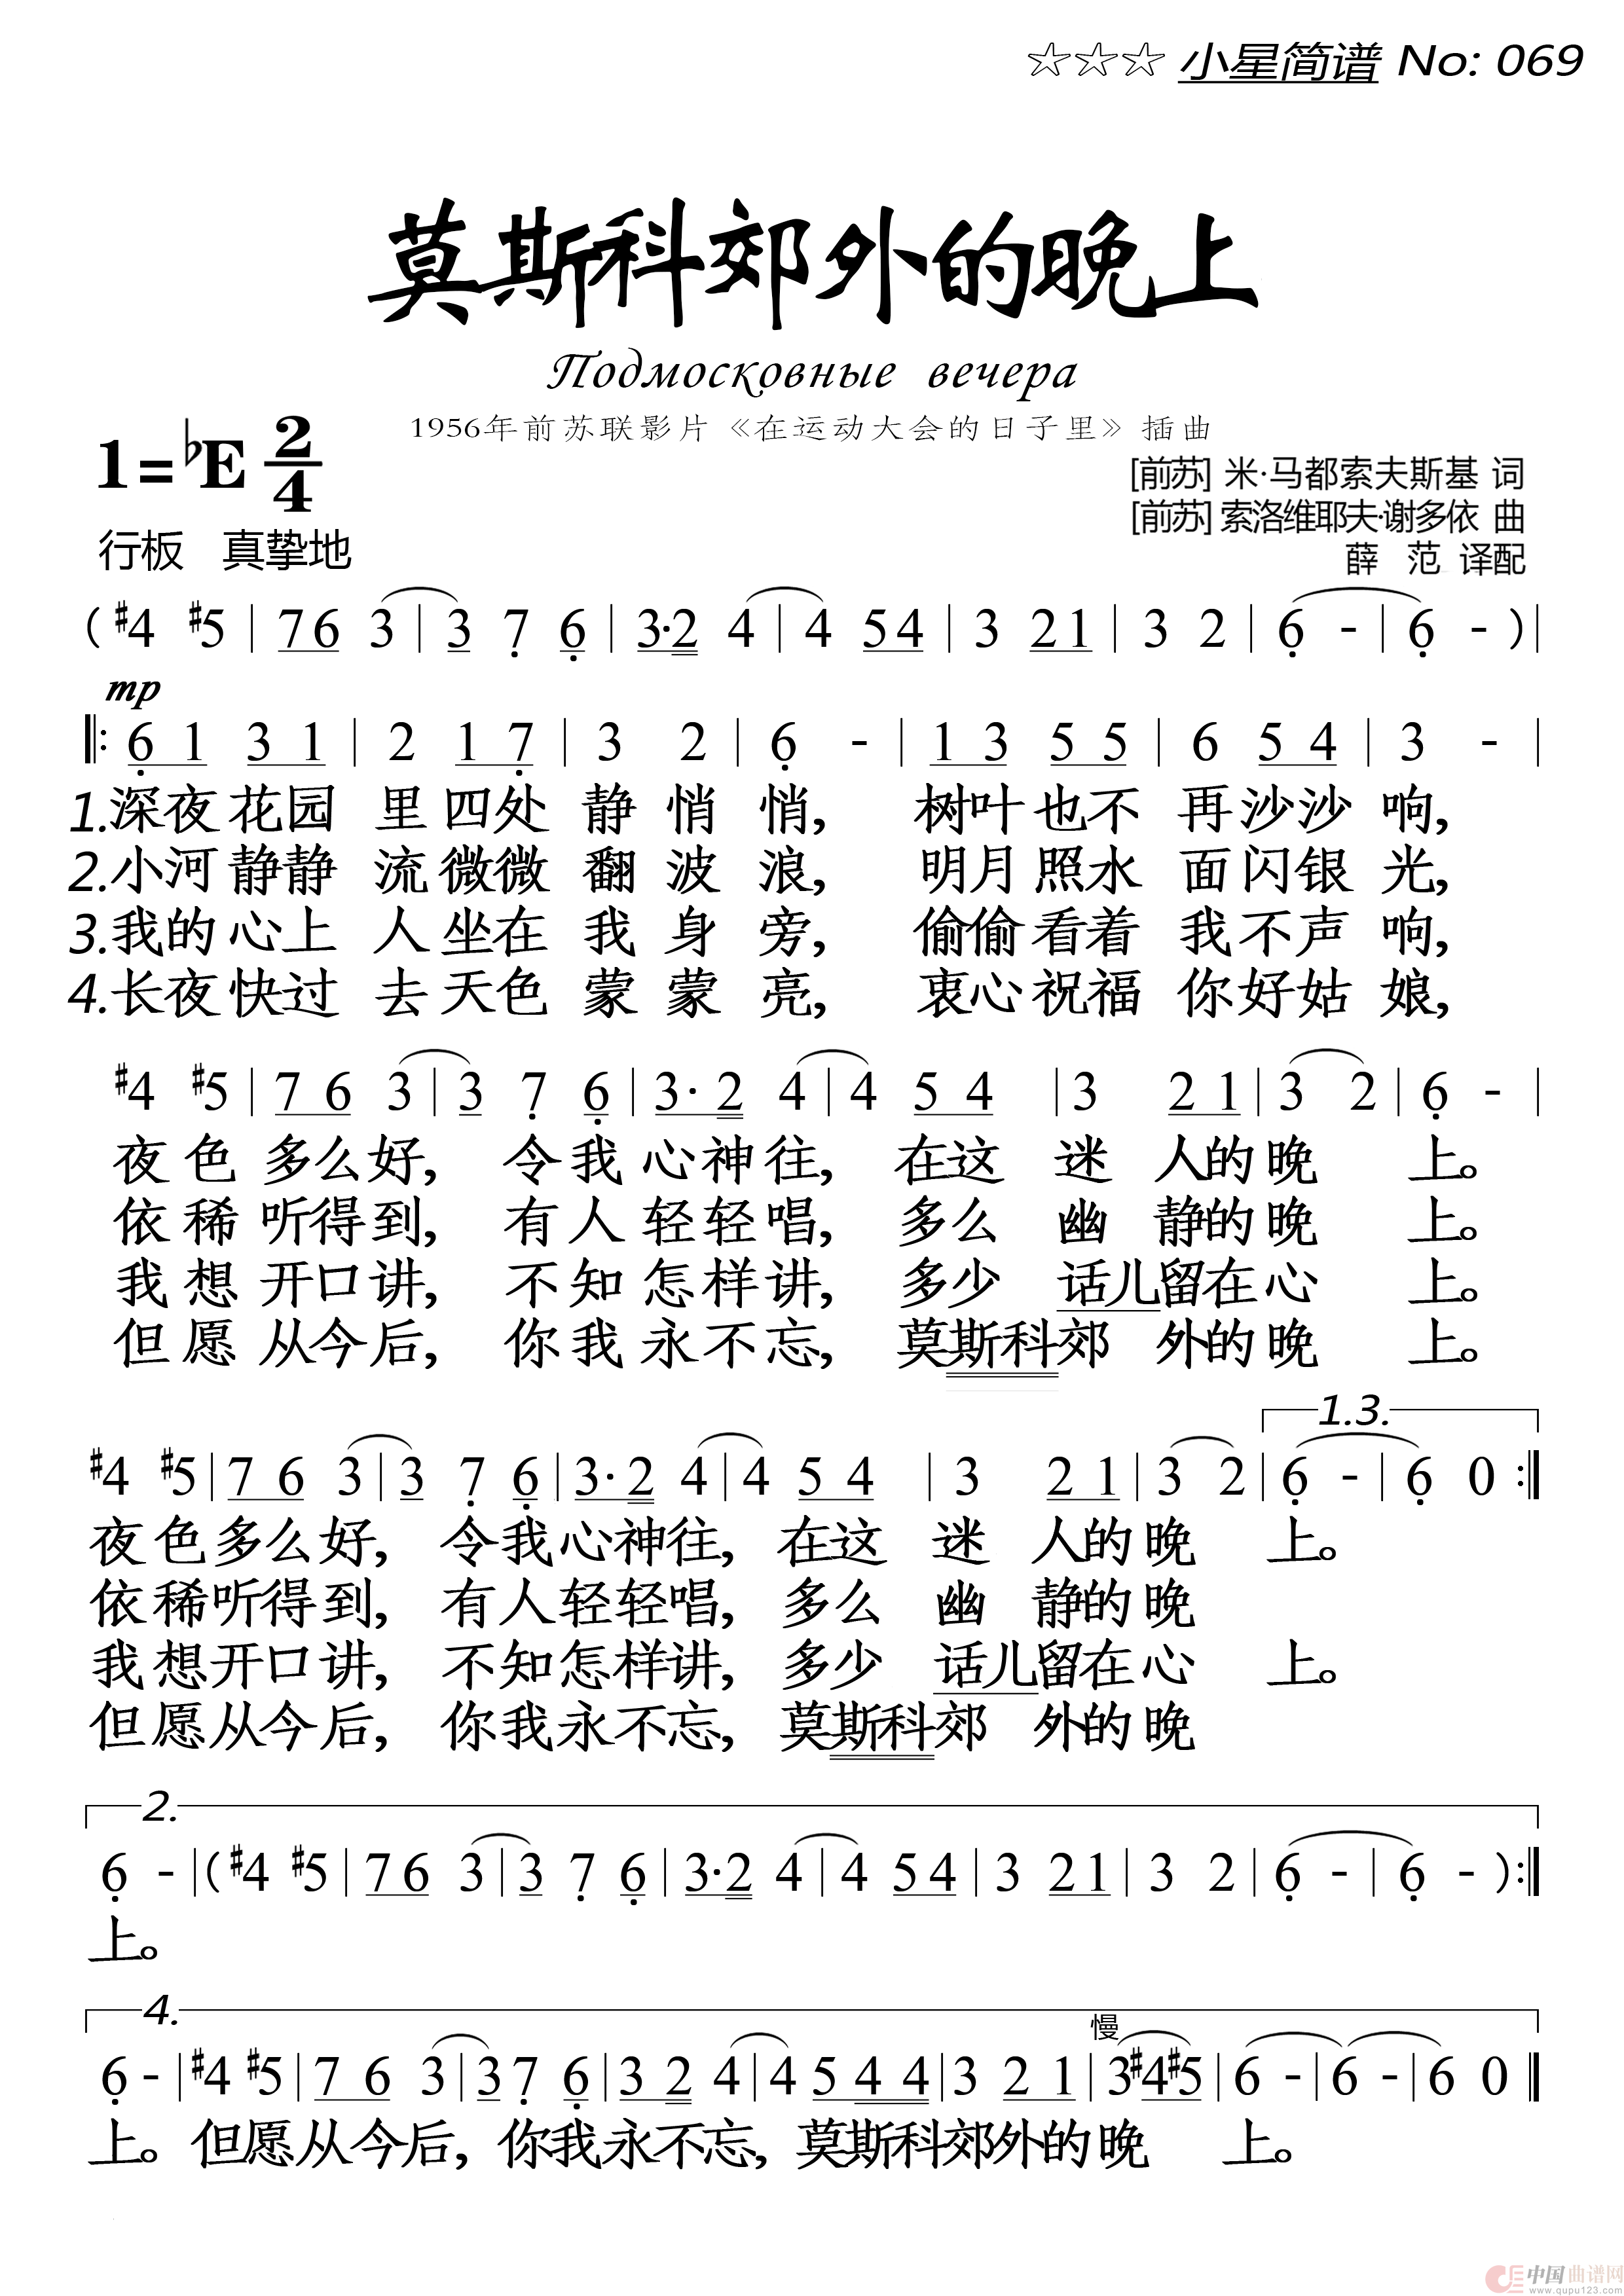 ☆☆☆ 小星简谱 No: 069
莫斯科郊外的晚上
Подмосковные вечера
1956年前苏联影片《在运动大会的日子里》插曲
1=♭E 2/4
[前苏] 米·马都索夫斯基 词
[前苏] 索洛维耶夫·谢多依 曲
行板 真挚地
薛 范 译配
( #4 #5 | 7 6 3 | 3 7 6 | 3·2 4 | 4 5 4 | 3 2 1 | 3 2 | 6 - | 6 - ) |
mp
‖: 6 1 3 1 | 2 1 7 | 3 2 | 6 - | 1 3 5 5 | 6 5 4 | 3 - |
1.深夜花园 里四处 静 悄 悄, 树叶也不 再沙沙 响,
2.小河静静 流微微 翻 波 浪, 明月照水 面闪银 光,
3.我的心上 人坐在 我 身 旁, 偷偷看着 我不声 响,
4.长夜快过 去天色 蒙 蒙 亮, 衷心祝福 你好姑 娘,
#4 #5 | 7 6 3 | 3 7 6 | 3· 2 4 | 4 5 4 | 3 2 1 | 3 2 | 6 - |
夜 色 多么好, 令我 心神往, 在这 迷 人的晚 上。
依 稀 听得到, 有人 轻轻唱, 多么 幽 静的晚 上。
我 想 开口讲, 不知 怎样讲, 多少 话儿留在心 上。
但 愿 从今后, 你我 永不忘, 莫斯科郊 外的晚 上。
1.3.
#4 #5 | 7 6 3 | 3 7 6 | 3· 2 4 | 4 5 4 | 3 2 1 | 3 2 | 6 - | 6 0 :‖
夜 色多么好, 令我心神往, 在这 迷 人的晚 上。
依 稀听得到, 有人轻轻唱, 多么 幽 静的晚
我 想开口讲, 不知怎样讲, 多少 话儿留在心 上。
但 愿从今后, 你我永不忘, 莫斯科郊 外的晚
2.
6 - | ( #4 #5 | 7 6 3 | 3 7 6 | 3·2 4 | 4 5 4 | 3 2 1 | 3 2 | 6 - | 6 - ) :‖
上。
4.
慢
6 - | #4 #5 | 7 6 3 | 3 7 6 | 3 2 4 | 4 5 4 4 | 3 2 1 | 3 #4 #5 | 6 - | 6 - | 6 0 ‖
上。但愿从今后, 你我永不忘, 莫斯科郊外的晚 上。
中国曲谱网
www.qupu123.com